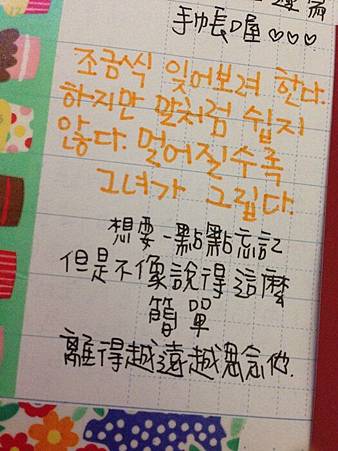 手帳喔♡♡♡
조금씩 잊어보려 한다.
하지만 말처럼 쉽지
않다. 멀어질수록
그녀가 그립다.
想要一點點忘記
但是不像說得這麼
簡單
離得越遠越想念他.